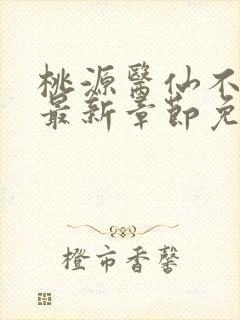 桃源醫仙不
最新章節免
橙市香馨